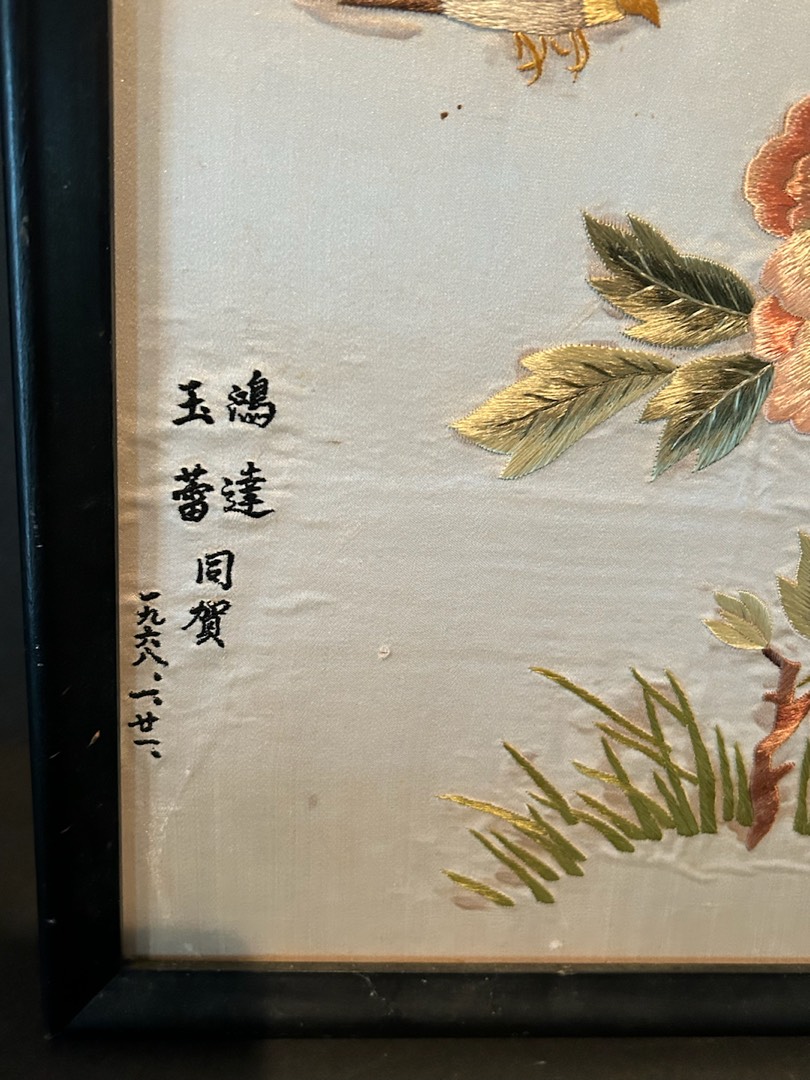 鴻達
玉蕾
同賀
一九六八、一、廿一、